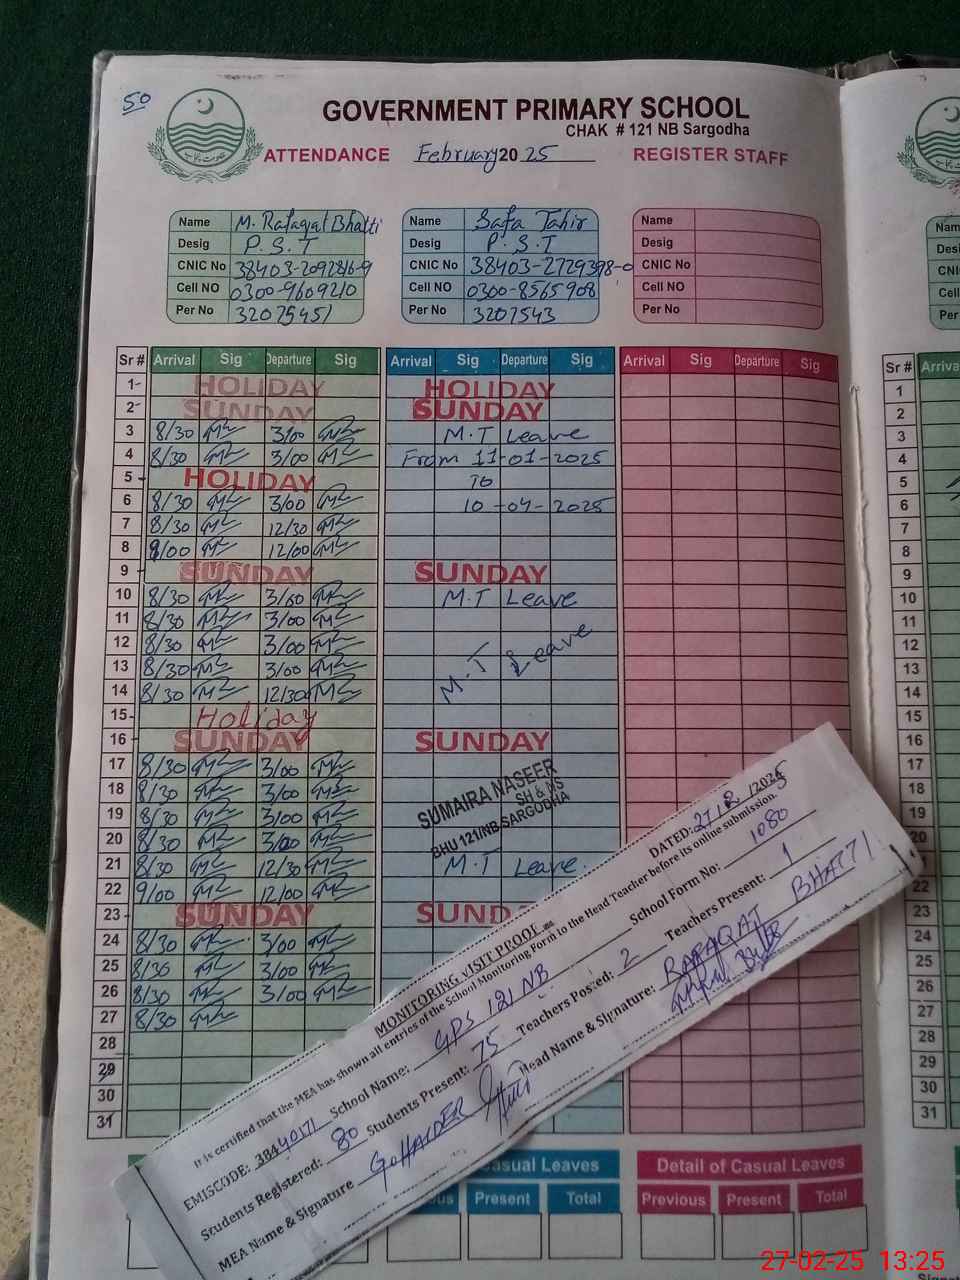 50
GOVERNMENT PRIMARY SCHOOL
CHAK # 121 NB Sargodha
ATTENDANCE February 2025 REGISTER STAFF
Name M. Rafaqat Bhatti
Desig P.S.T
CNIC No 38403-2092816-9
Cell NO 0300-9609210
Per No 32075451
Name Safa Tahir
Desig P.S.T
CNIC No 38403-2729398-0
Cell NO 0300-8565908
Per No 3207543
Name
Desig
CNIC No
Cell NO
Per No
Sr # Arrival Sig Departure Sig Arrival Sig Departure Sig Arrival Sig Departure Sig
1 HOLIDAY HOLIDAY
2 SUNDAY SUNDAY
3 8/30 3/00 M.T Leave
4 8/30 3/00 From 11-01-2025
5 HOLIDAY To
6 8/30 3/00 10-04-2025
7 8/30 12/30
8 9/00 12/00
9 SUNDAY SUNDAY
10 8/30 3/00 M.T Leave
11 8/30 3/00
12 8/30 3/00
13 8/30 3/00 M.T Leave
14 8/30 12/30
15 Holiday
16 SUNDAY SUNDAY
17 8/30 3/00
18 8/30 3/00
19 8/30 3/00
20 8/30 3/00
21 8/30 12/30 M.T Leave
22 9/00 12/00
23 SUNDAY SUND
24 8/30 3/00
25 8/30 3/00
26 8/30 3/00
27 8/30
28
29
30
31
SUMAIRA NASEER
SH & NS
BHU 121/NB SARGODHA
MONITORING VISIT PROOF
DATED: 27/2/2025
It is certified that the MEA has shown all entries of the School Monitoring Form to the Head Teacher before its online submission.
EMISCODE: 38440171 School Name: GPS 121 NB School Form No: 1080
Students Registered: 80 Students Present: 75 Teachers Posted: 2 Teachers Present: 1
MEA Name & Signature G. HAIDER Head Name & Signature: RAFAQAT BHATTI
Casual Leaves
Present Total
Detail of Casual Leaves
Previous Present Total
Sr #
1
2
3
4
5
6
7
8
9
10
11
12
13
14
15
16
17
18
19
20
21
22
23
24
25
26
27
28
29
30
31
27-02-25 13:25